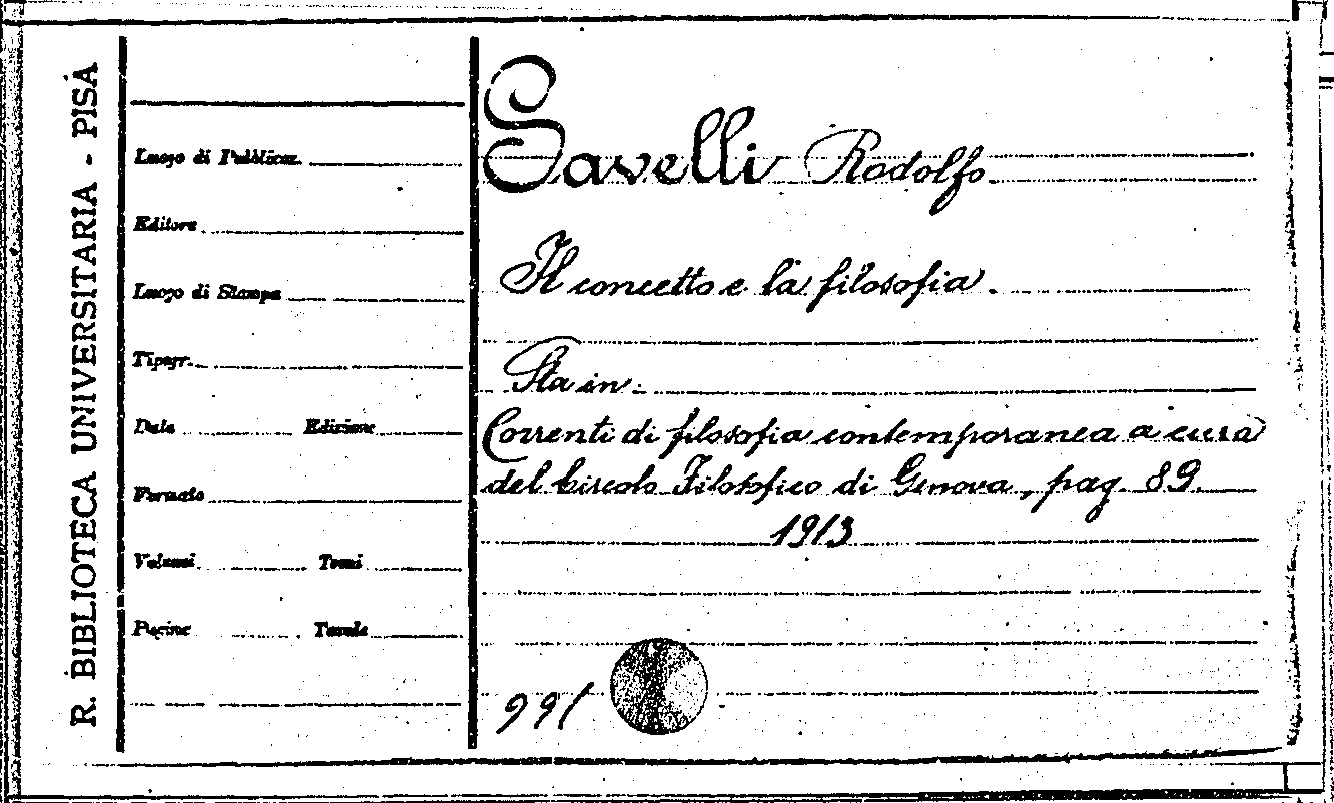 R. BIBLIOTECA UNIVERSITARIA - PISA
Luogo di Pubblicaz.
Editore
Luogo di Stampa
Tipogr.
Data Edizione
Formato
Volumi Tomi
Pagine Tavole
Savelli Rodolfo
Il concetto e la filosofia.
Sta in:
Correnti di filosofia contemporanea a cura
del Circolo Filosofico di Genova, pag. 89.
1913
991